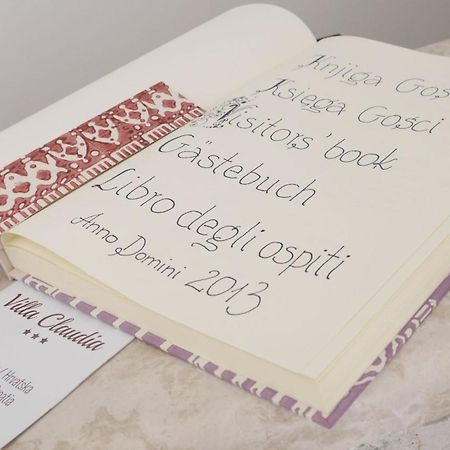 Knjiga Gos
Księga Gości
Visitors' book
Gästebuch
Libro degli ospiti
Anno Domini 2013
Villa Claudia
★★★
/ Hrvatska